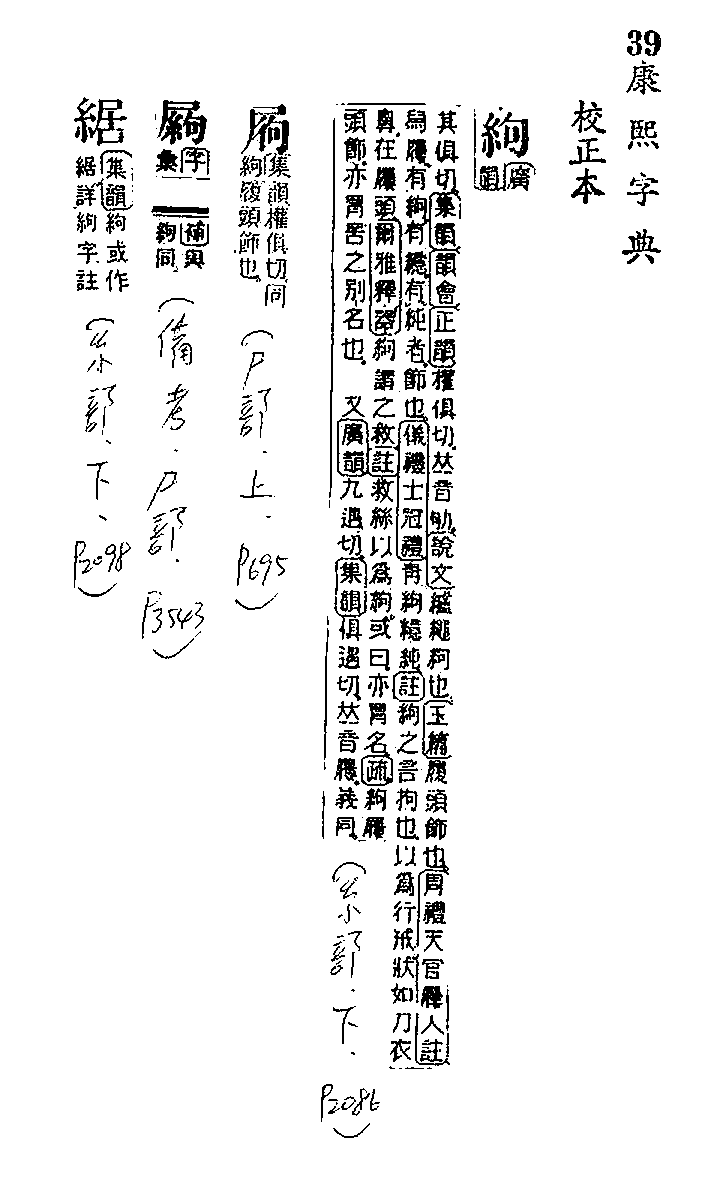 39
康熙字典
校正本
絇 廣韻
其俱切集韻韻會正韻權俱切𠀤音劬說文纑繩絇也玉篇履頭飾也周禮天官屨人註
舄屨有絇有繶有純者飾也儀禮士冠禮靑絇繶純註絇之言拘也以爲行戒狀如刀衣
鼻在屨頭爾雅釋器絇謂之救註救絲以爲絇或曰亦罥名疏絇屨
頭飾亦罥罟之別名也 又廣韻九遇切集韻俱遇切𠀤音屨義同
(糸部.下.
P2086)
集韻權俱切同
絇履頭飾也
(尸部.上.
P695)
字
彙
補與
絇同
(備考.尸部.
P3543)
䋧
集韻絇或作
䋧詳絇字註
(糸部.下.
P2098)